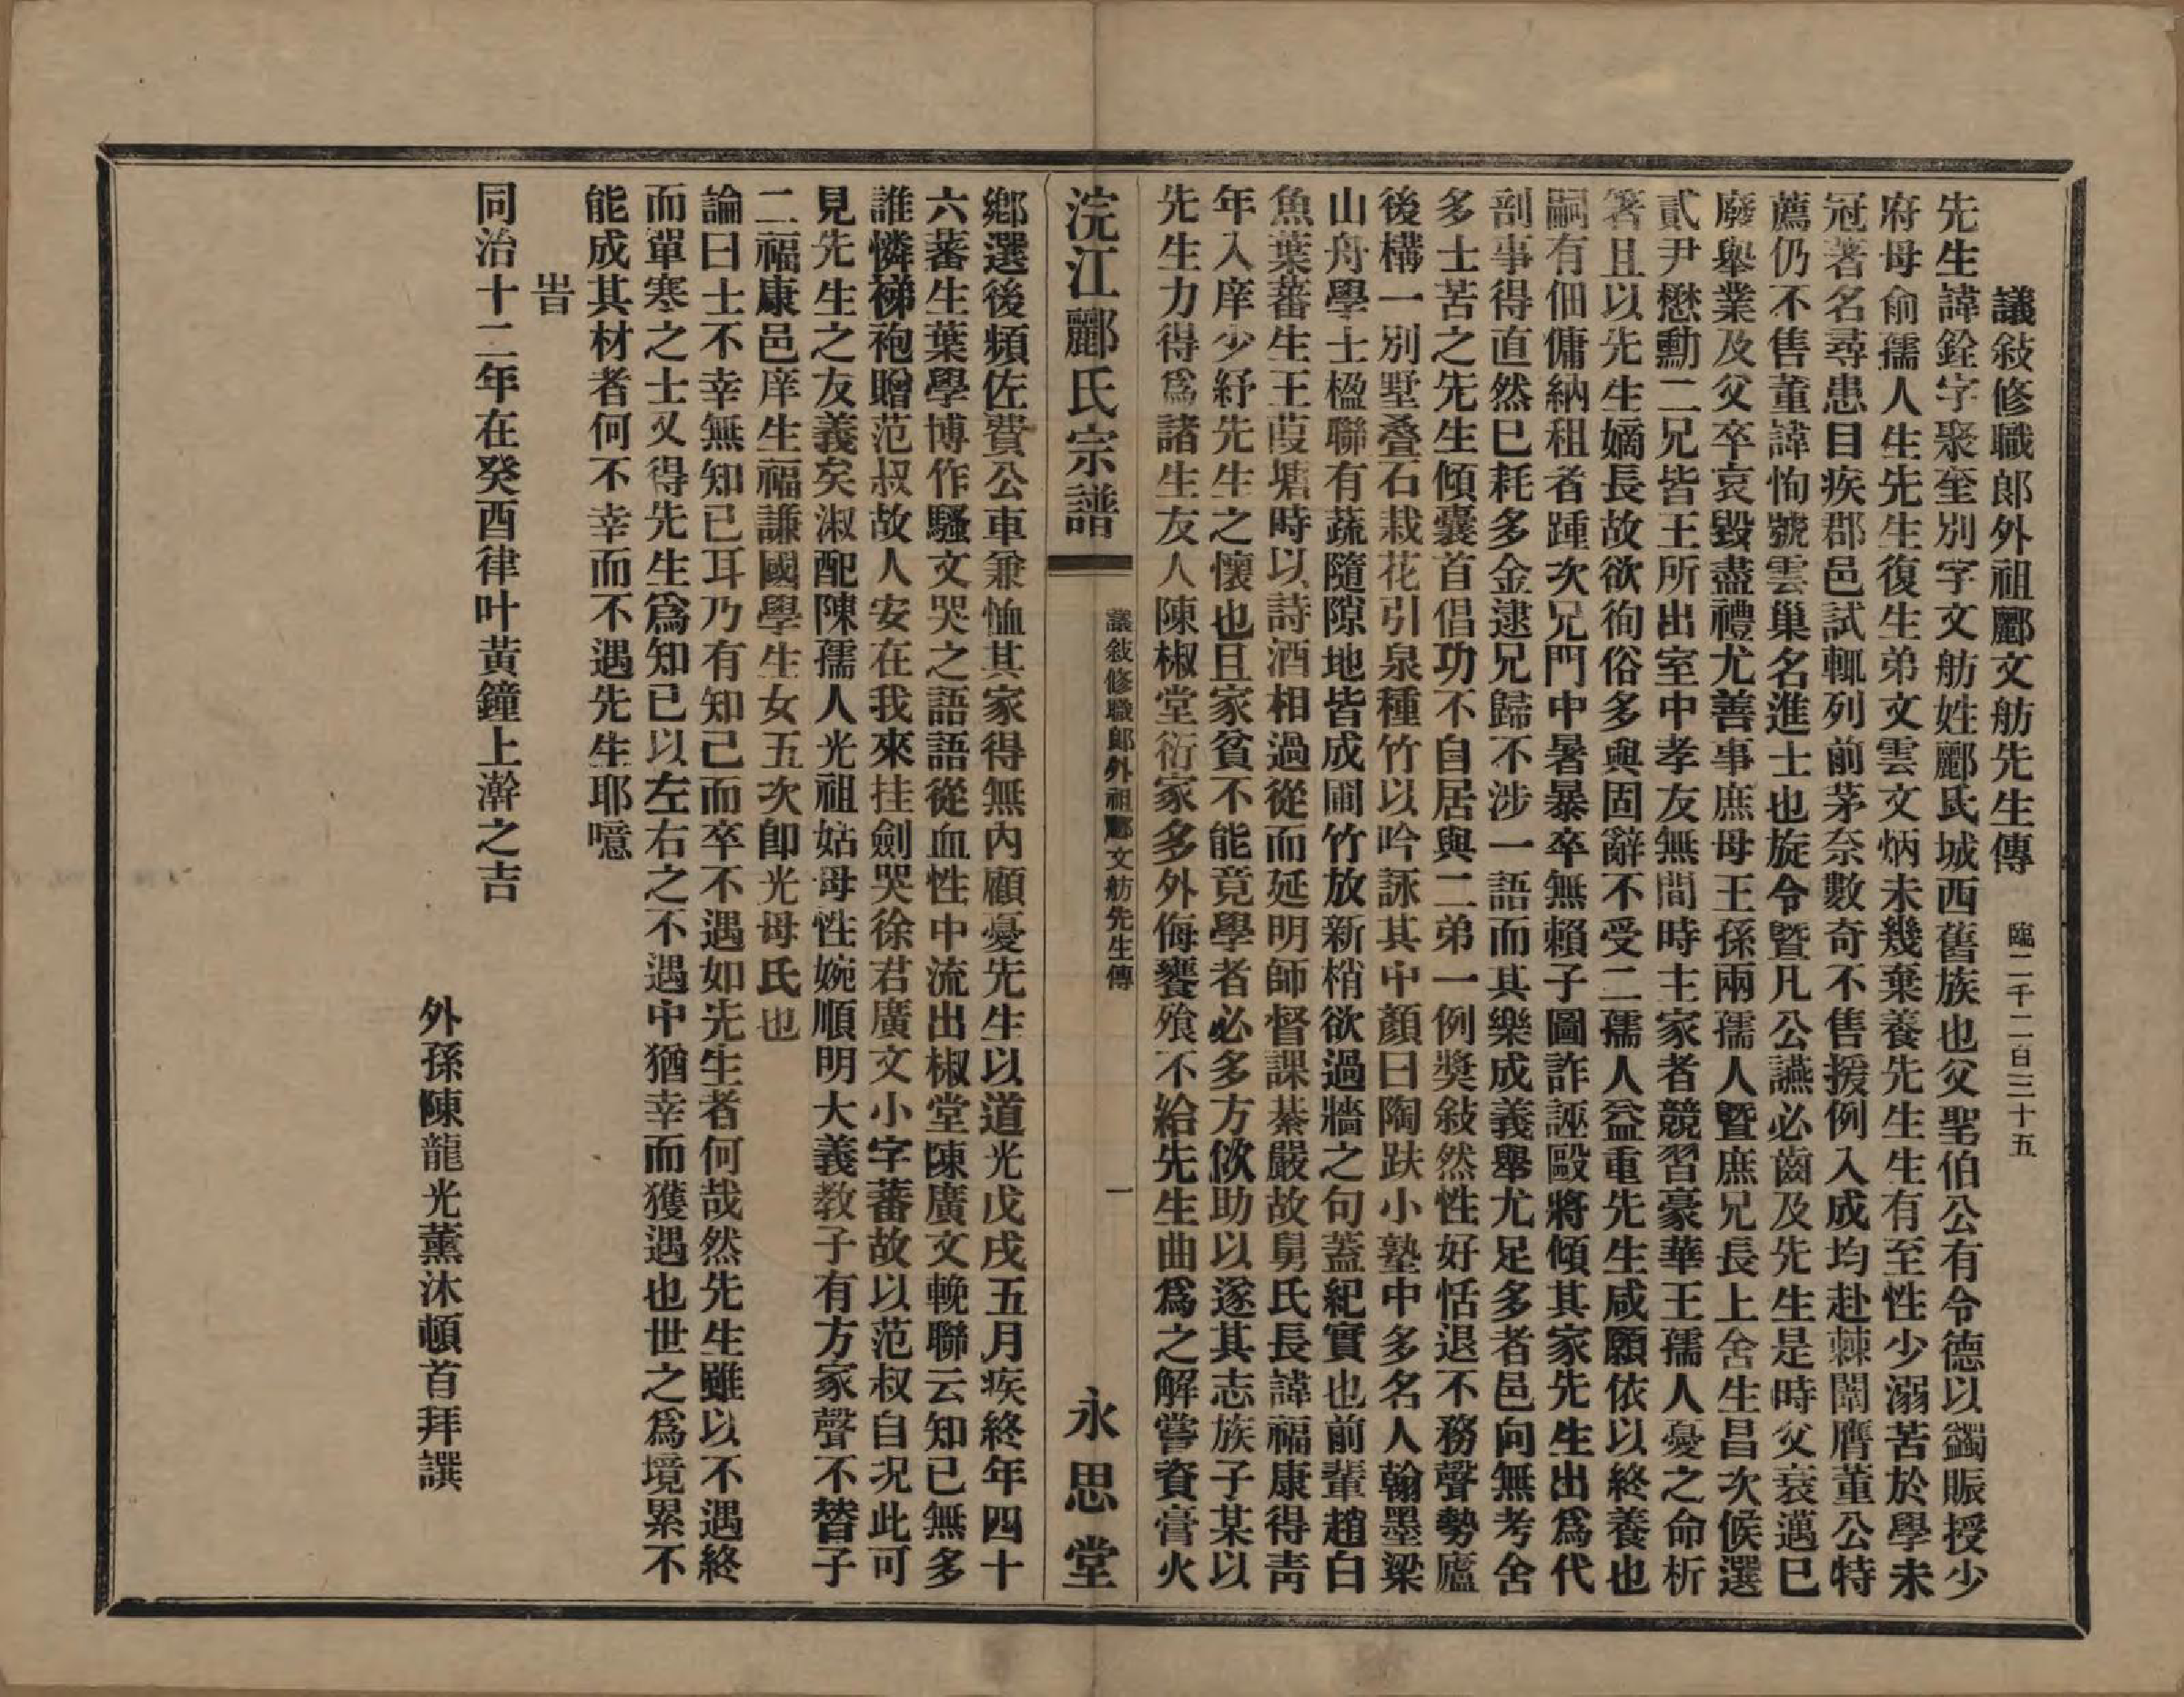 議敍修職郎外祖酈文舫先生傳　臨二千二百三十五
先生諱銓字聚奎別字文舫姓酈氏城西舊族也父聖伯公有令德以蠲賑授少
府母俞孺人生先生復生弟文雲文炳未幾棄養先生生有至性少溺苦於學未
冠著名尋患目疾郡邑試輒列前茅奈數奇不售援例入成均赴棘闈膺董公特
薦仍不售董諱恂號雲巢名進士也旋令暨凡公讌必齒及先生是時父衰邁已
廢舉業及父卒哀毀盡禮尤善事庶母王孫兩孺人暨庶兄長上舍生昌次候選
貳尹懋勳二兄皆王所出室中孝友無間時主家者競習豪華王孺人憂之命析
箸且以先生嫡長故欲徇俗多與固辭不受二孺人益重先生咸願依以終養也
嗣有佃傭納租者踵次兄門中暑暴卒無賴子圖詐誣毆將傾其家先生出爲代
剖事得直然已耗多金逮兄歸不涉一語而其樂成義舉尤足多者邑向無考舍
多士苦之先生傾囊首倡功不自居與二弟一例獎敍然性好恬退不務聲勢廬
後構一別墅叠石栽花引泉種竹以吟詠其中顏曰陶趺小塾中多名人翰墨梁
山舟學士楹聯有蔬隨隙地皆成圃竹放新梢欲過牆之句蓋紀實也前輩趙白
魚葉蕃生王葭塘時以詩酒相過從而延明師督課綦嚴故舅氏長諱福康得青
年入庠少紓先生之懷也且家貧不能竟學者必多方佽助以遂其志族子某以
先生力得爲諸生友人陳椒堂衍家多外侮饔飧不給先生曲爲之解嘗資膏火
浣江酈氏宗譜
議敍修職郎外祖酈文舫先生傳
一
永思堂
鄉選後頻佐費公車兼恤其家得無內顧憂先生以道光戊戌五月疾終年四十
六蕃生葉學博作騷文哭之語語從血性中流出椒堂陳廣文輓聯云知已無多
誰憐綈袍贈范叔故人安在我來挂劍哭徐君廣文小字蕃故以范叔自况此可
見先生之友義矣淑配陳孺人光祖姑母性婉順明大義教子有方家聲不替子
二福康邑庠生福謙國學生女五次卽光母氏也
論曰士不幸無知已耳乃有知己而卒不遇如先生者何哉然先生雖以不遇終
而單寒之士又得先生爲知已以左右之不遇中猶幸而獲遇也世之爲境累不
能成其材者何不幸而不遇先生耶噫
旹
同治十二年在癸酉律叶黃鐘上澣之吉
外孫陳龍光薰沐頓首拜譔